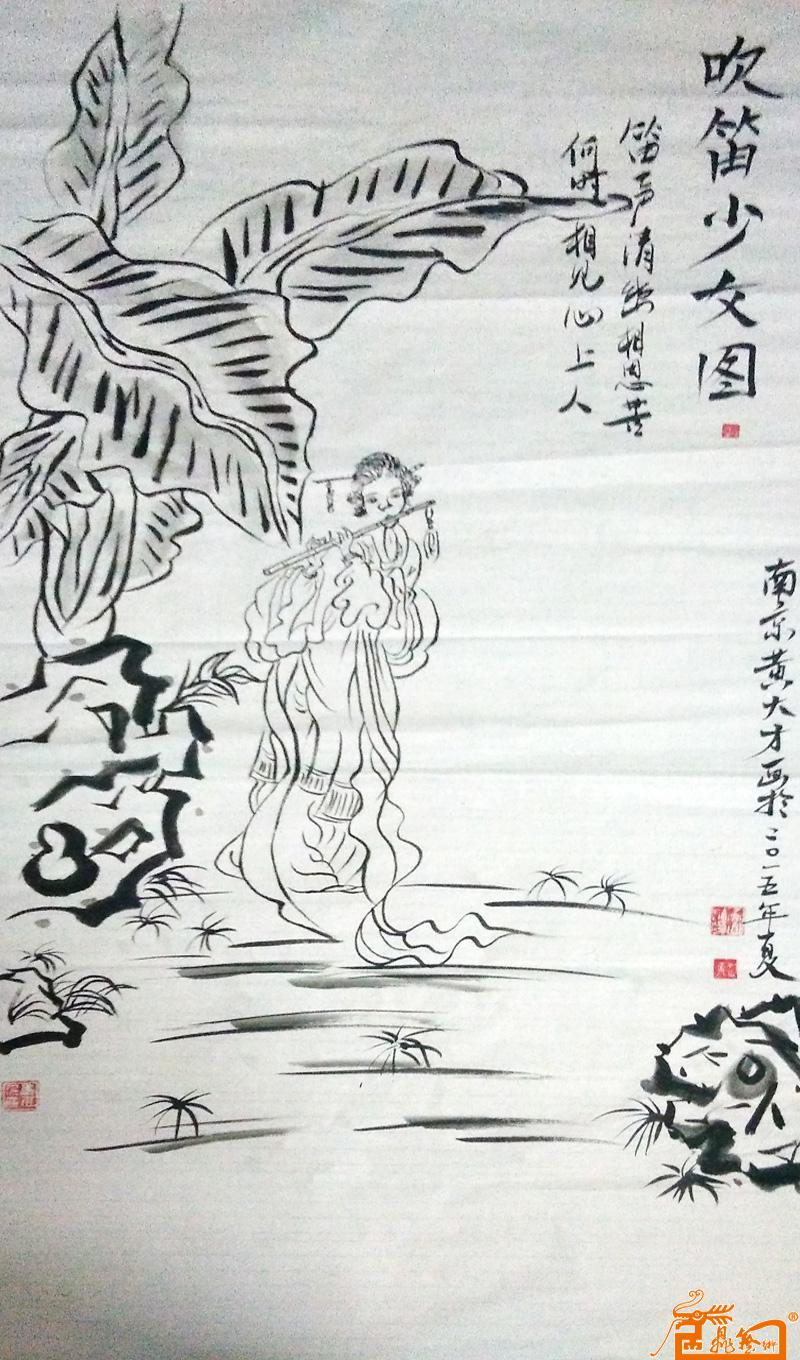 吹笛少女图
笛声清幽相思苦
何时相见心上人
南京黄大才画於二〇一五年夏